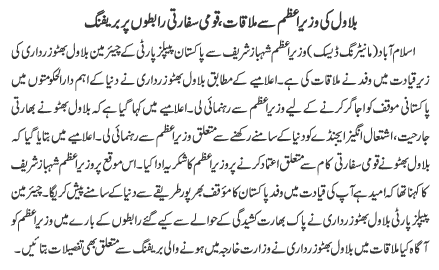 بلاول کی وزیراعظم سے ملاقات، قومی سفارتی رابطوں پر بریفنگ
اسلام آباد (مانیٹرنگ ڈیسک) وزیراعظم شہباز شریف سے پاکستان پیپلز پارٹی کے چیئرمین بلاول بھٹو زرداری کی
زیر قیادت میں وفد نے ملاقات کی ہے۔ اعلامیے کے مطابق بلاول بھٹو زرداری نے دنیا کے اہم دارالحکومتوں میں
پاکستانی موقف کو اجاگر کرنے کے لیے وزیراعظم سے رہنمائی لی۔ اعلامیے میں کہا گیا ہے کہ بلاول بھٹو نے بھارتی
جارحیت، اشتعال انگیز ایجنڈے کو دنیا کے سامنے رکھنے سے متعلق وزیراعظم سے رہنمائی لی۔ اعلامیے میں بتایا گیا کہ
بلاول بھٹو نے قومی سفارتی کام سے متعلق اعتماد کرنے پر وزیراعظم کا شکریہ ادا کیا۔ اس موقع پر وزیراعظم شہباز شریف
کا کہنا تھا کہ امید ہے آپ کی قیادت میں وفد پاکستان کا مؤقف بھرپور طریقے سے دنیا کے سامنے پیش کریگا۔ چیئرمین
پیپلز پارٹی بلاول بھٹو زرداری نے پاک بھارت کشیدگی کے حوالے سے کیے گئے رابطوں کے بارے میں وزیراعظم کو
آگاہ کیا ملاقات میں بلاول بھٹو زرداری نے وزارت خارجہ میں ہونے والی بریفنگ سے متعلق بھی تفصیلات بتائیں۔